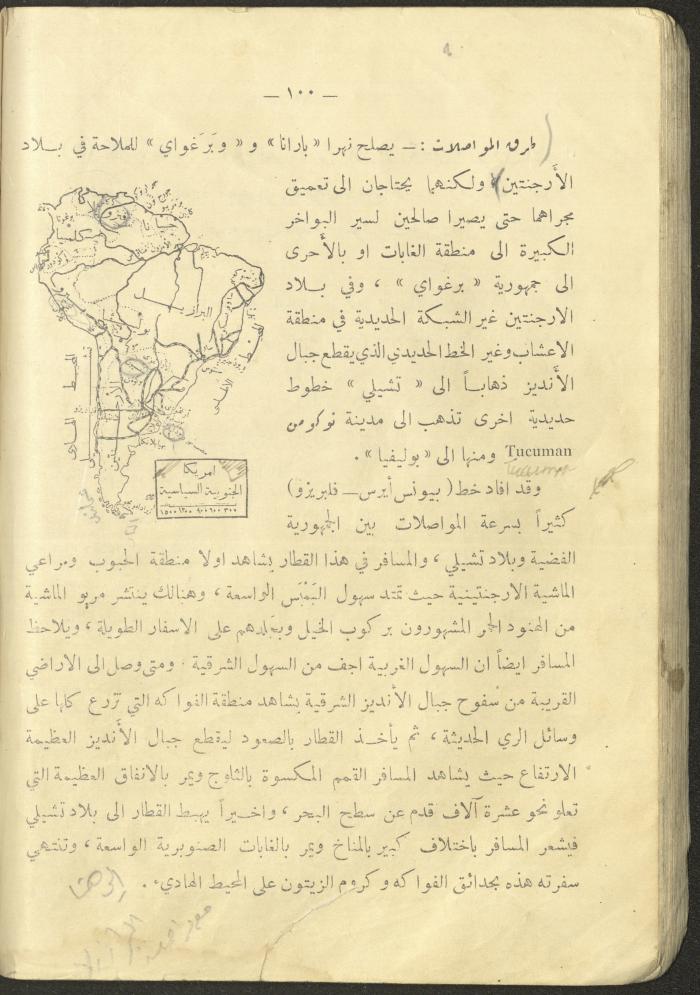 — ١٠٠ —
طرق المواصلات : — يصلح نهرا « بارانا » و « وبَرَغواي » للملاحة في بـلاد
الأَرجنتين ولكنهما يحتاجان الى تعميق
مجراهما حتى يصيرا صالحين لسير البواخر
الكبيرة الى منطقة الغابات او بالأَحرى
الى جمهورية « برغواي » ، وفي بـلاد
الارجنتين غير الشبكة الحديدية في منطقة
الاعشاب وغير الخط الحديدي الذي يقطع جبال
الأَنديز ذهابـاً الى « تشيلي » خطوط
حديدية اخرى تذهب الى مدينة نوكومن
Tucuman ومنها الى « بوليفيا » .
Tucuman
وقد افاد خط ( بيونس أيرس — فلبريزو )
كثيراً بسرعة المواصلات بين الجمهورية
البرازيل
امريكا
الجنوبية السياسية
٣٠٠ ٦٠٠ ٩٠٠ ١٢٠٠ ١٥٠٠
الفضية وبلاد تشيلي ، والمسافر في هذا القطار يشاهد اولا منطقة الحبوب ومراعي
الماشية الارجنتينية حيث تمتد سهول البَمْبَس الواسعة ، وهنالك ينتشر مربو الماشية
من الهنود الحمر المشهورون بركوب الخيل وبجلدهم على الاسفار الطويلة ، ويلاحظ
المسافر ايضاً ان السهول الغربية اجف من السهول الشرقية . ومتى وصل الى الاراضي
القريبة من سفوح جبال الأنديز الشرقية يشاهد منطقة الفواكه التي تزرع كلها على
وسائل الري الحديثة ، ثم يأخـذ القطار بالصعود ليقطع جبال الأَنديز العظيمة
الارتفاع حيث يشاهد المسافر القمم المكسوة بالثلوج ويمر بالانفاق العظيمة التي
تعلو نحو عشرة آلاف قدم عن سطح البحر ، واخـيراً يهبط القطار الى بلاد تشيلي
فيشعر المسافر باختلاف كبير بالمناخ ويمر بالغابات الصنوبرية الواسعة ، وتنتهي
سفرته هذه بحدائق الفواكه وكروم الزيتون على المحيط الهاديء .
الى هنا